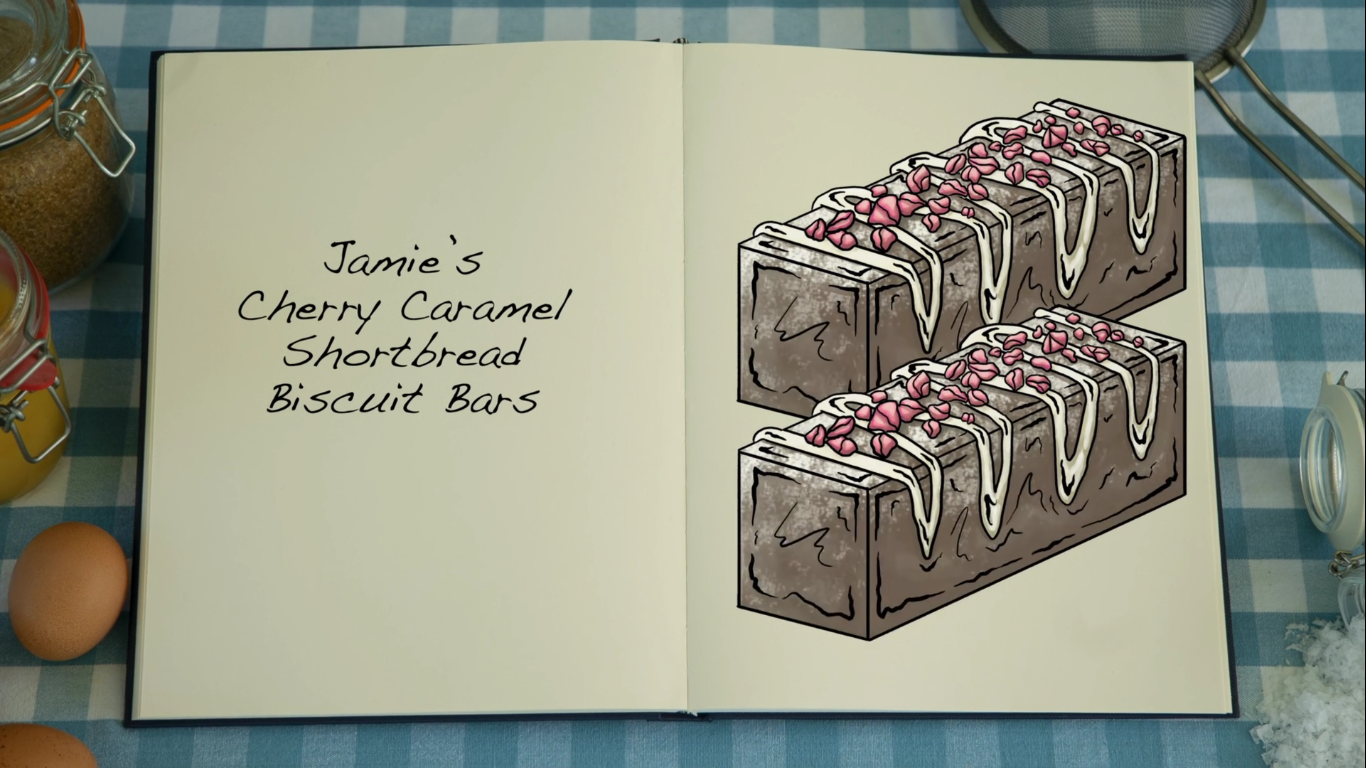 Jamie's
Cherry Caramel
Shortbread
Biscuit Bars